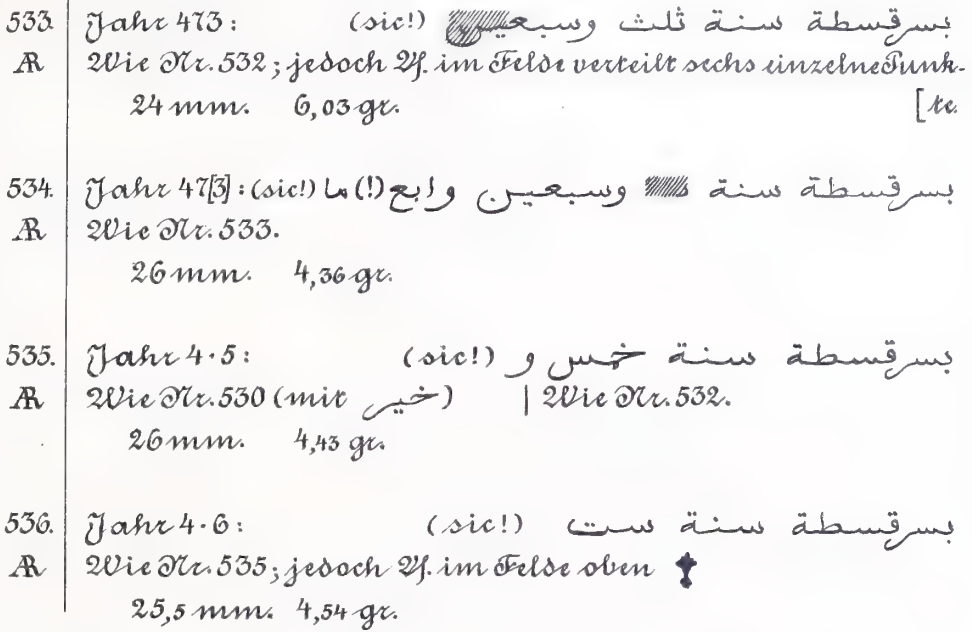 533. Jahr 473: (sic!) بسرقسطة سنة ثلث وسبعين
AR Wie Nr. 532; jedoch Vf. im Felde verteilt sechs einzelne Punk-
24 mm. 6,03 gr. [te.
534. Jahr 47[3]: (sic!) بسرقسطة سنة وسبعين وابع (!) ما
AR Wie Nr. 533.
26 mm. 4,36 gr.
535. Jahr 4·5: (sic!) بسرقسطة سنة خمس و
AR Wie Nr. 530 (mit خير) | Wie Nr. 532.
26 mm. 4,43 gr.
536. Jahr 4·6: (sic!) بسرقسطة سنة ست
AR Wie Nr. 535; jedoch Vf. im Felde oben
25,5 mm. 4,54 gr.